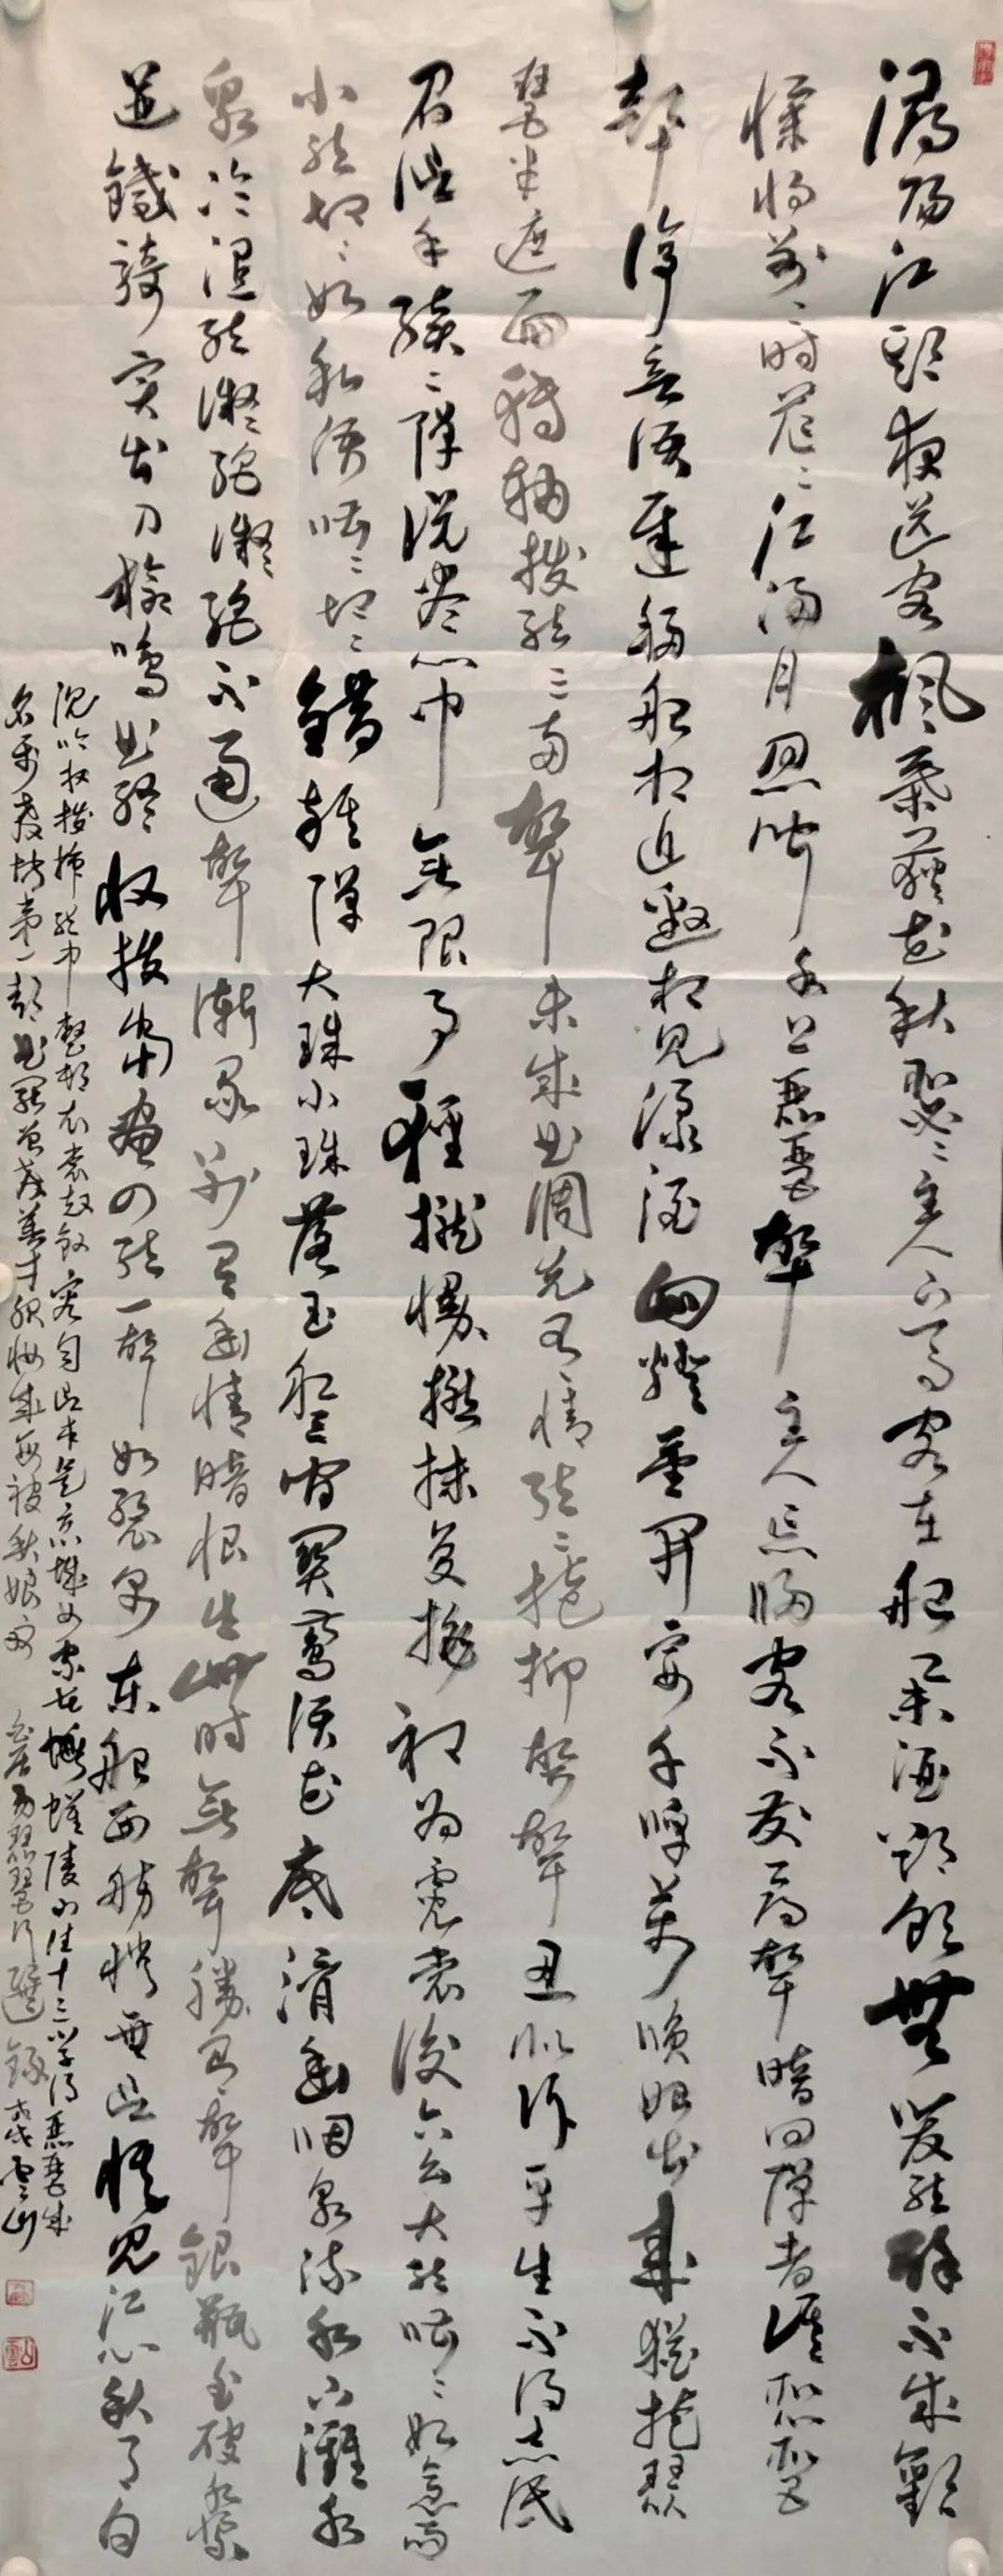 潯陽江頭夜送客楓葉荻花秋瑟瑟主人下馬客在船舉酒欲飲無管絃醉不成歡
慘將別別時茫茫江浸月忽聞水上琵琶聲主人忘歸客不發尋聲暗問彈者誰琵琶
聲停欲語遲移船相近邀相見添酒回燈重開宴千呼萬喚始出來猶抱琵
琶半遮面轉軸撥絃三兩聲未成曲調先有情絃絃掩抑聲聲思似訴平生不得志低
眉信手續續彈說盡心中無限事輕攏慢撚抹復挑初為霓裳後六幺大絃嘈嘈如急雨
小絃切切如私語嘈嘈切切錯雜彈大珠小珠落玉盤間關鶯語花底滑幽咽泉流水下灘水
泉冷澀絃凝絕凝絕不通聲漸歇別有幽情暗恨生此時無聲勝有聲銀瓶乍破水漿
迸鐵騎突出刀槍鳴曲終收撥當心畫四絃一聲如裂帛東船西舫悄無言唯見江心秋月白
沉吟放撥插絃中整頓衣裳起斂容自言本是京城女家在蝦蟆陵下住十三學得琵琶成
名屬教坊第一部曲罷曾教善才服妝成每被秋娘妒 白居易琵琶行選錄 雲山